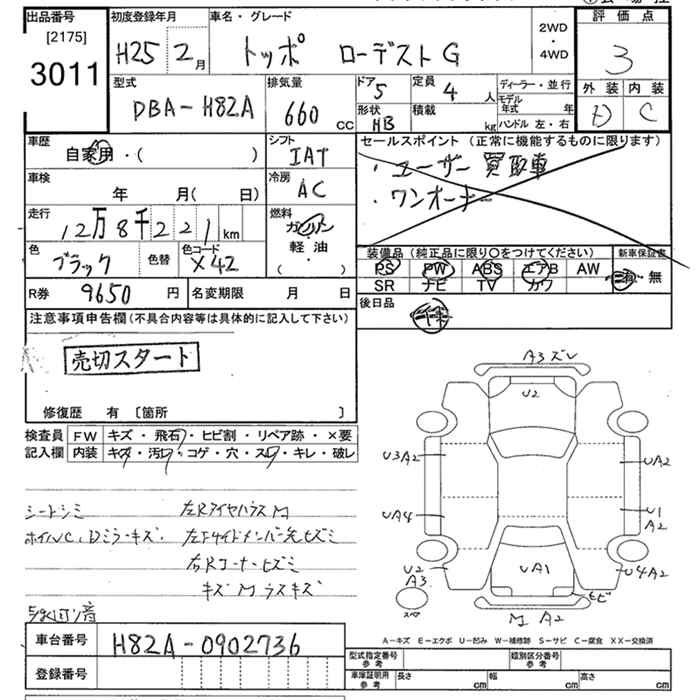 出品番号 初度登録年月 車名・グレード 評価点
[2175]
3011
H25 2月 トッポ ローデストG 2WD・4WD 3
型式 排気量 ドア 定員 ディーラー・並行 外装 内装
DBA-H82A 660 CC 5 4人 モデル年式 年 D C
形状 積載 ハンドル 左・右
HB kg
車歴 シフト セールスポイント (正常に機能するものに限ります)
自家用・( ) IAT ・ユーザー買取車
車検 冷房 ・ワンオーナー
年 月( 日) AC
走行 燃料
12万8千221km ガソリン
軽油
( ・ )
色 色替 色コード 装備品 (純正品に限り○をつけてください) 新車保証書
ブラック X42 PS PW ABS エアB AW 有・無
SR ナビ TV カワ
R券 9650円 名変期限 月 日 後日品
注意事項申告欄(不具合内容等は具体的に記入して下さい)
売切スタート
修復歴 有 〔箇所 〕
検査員 FW キズ・飛石・ヒビ割・リペア跡・×要
記入欄 内装 キズ・汚レ・コゲ・穴・スレ・キレ・破レ
シートシミ 左Rタイヤハウス M
ホイルC, Dミラーキズ 左Fサイドメンバー先ヒズミ
右Rコーナーヒズミ
A3 ズレ
U2
U3A2 UA2
UA4 U1
A2
U2 UA1 U4A2
A3
ヒビ
M A2
A-キズ E-エクボ U-凹み W-補修跡 S-サビ C-腐食 XX-交換済
車台番号 H82A-0902736 型式指定番号 参考 類別区分番号 参考
登録番号 車庫証明用 参考 長さ cm 幅 cm 高さ cm